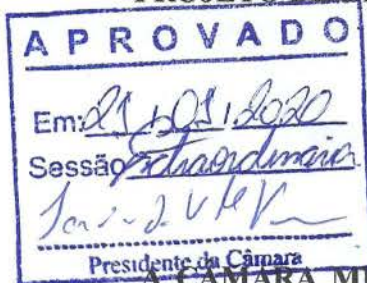 PROJETO
APROVADO
Em: 21/01/2020
Sessão Extraordinária
Presidente da Câmara
A CÂMARA